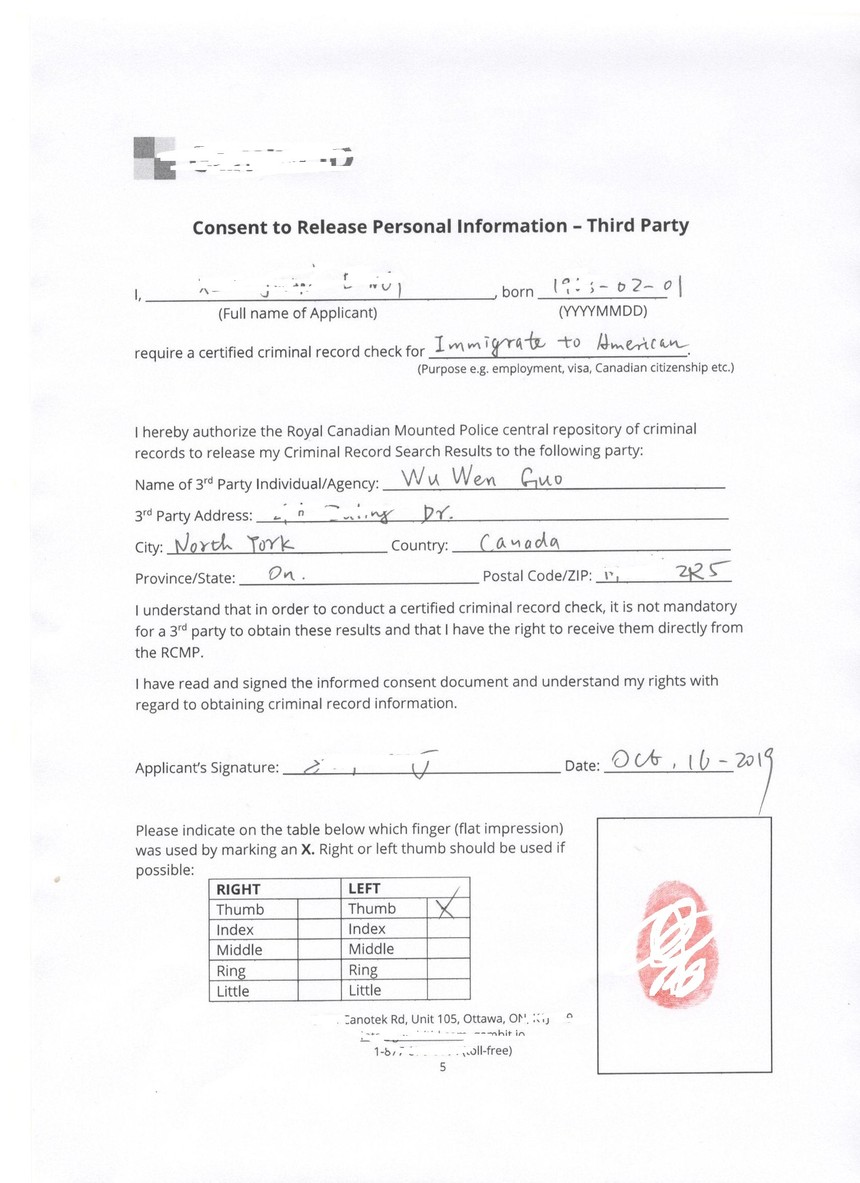 Consent to Release Personal Information – Third Party
I, , born -02-01
(Full name of Applicant) (YYYYMMDD)
require a certified criminal record check for Immigrate to American.
(Purpose e.g. employment, visa, Canadian citizenship etc.)
I hereby authorize the Royal Canadian Mounted Police central repository of criminal
records to release my Criminal Record Search Results to the following party:
Name of 3rd Party Individual/Agency: Wu Wen Guo
3rd Party Address: Dr.
City: North York Country: Canada
Province/State: On. Postal Code/ZIP: 2R5
I understand that in order to conduct a certified criminal record check, it is not mandatory
for a 3rd party to obtain these results and that I have the right to receive them directly from
the RCMP.
I have read and signed the informed consent document and understand my rights with
regard to obtaining criminal record information.
Applicant's Signature: Date: Oct, 16-2019
Please indicate on the table below which finger (flat impression)
was used by marking an X. Right or left thumb should be used if
possible:
RIGHT LEFT
Thumb Thumb X
Index Index
Middle Middle
Ring Ring
Little Little
Rd, Unit 105, Ottawa,
5